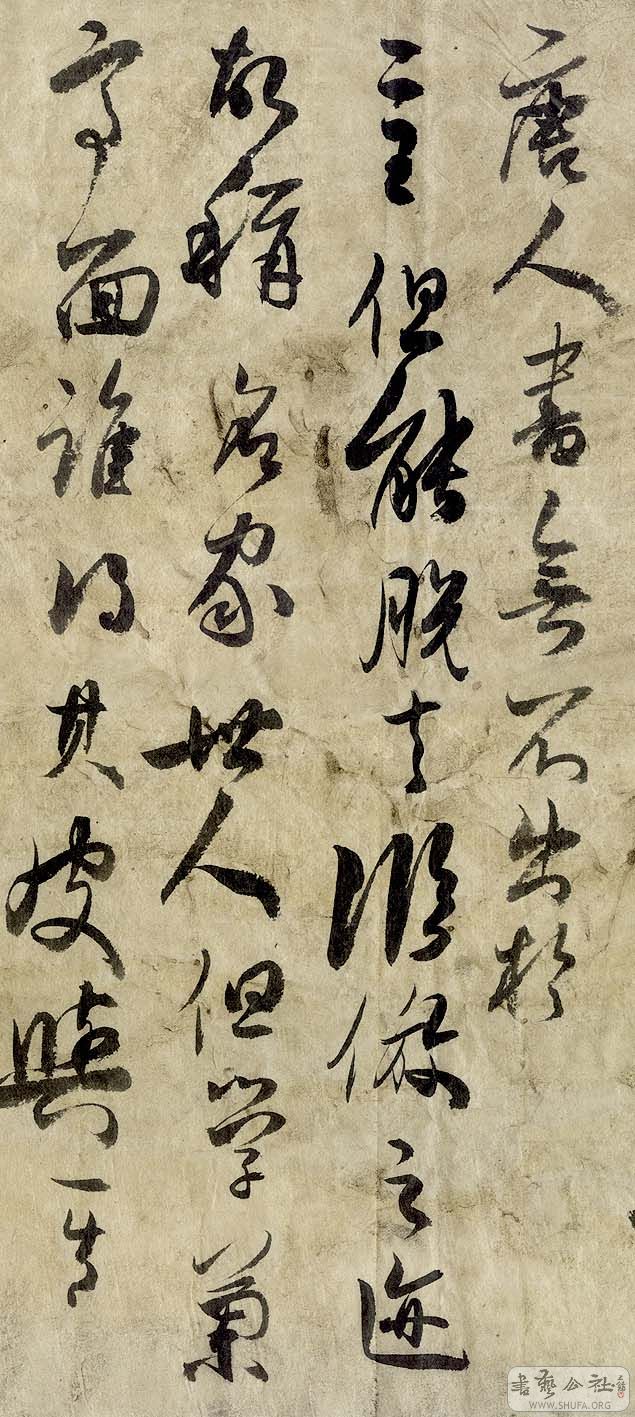 唐人書無不出於
二王但能脫去臨倣之迹
故稱名家世人但學蘭
亭面誰得其皮與骨
書藝公社
WWW.SHUFA.ORG